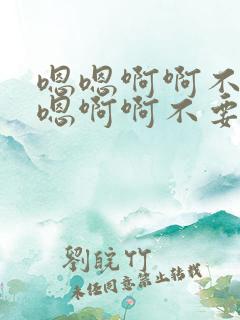 嗯嗯啊啊不
嗯啊啊不要
劉皖竹
未经同意禁止转载